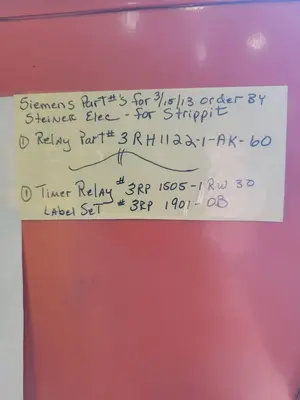 Siemens Part #'s for 3/15/13 order By
Steiner Elec - for Strippit
① Relay Part # 3RH1122-1-AK-60
① Timer Relay # 3RP 1505-1RW30
Label Set # 3RP 1901-0B